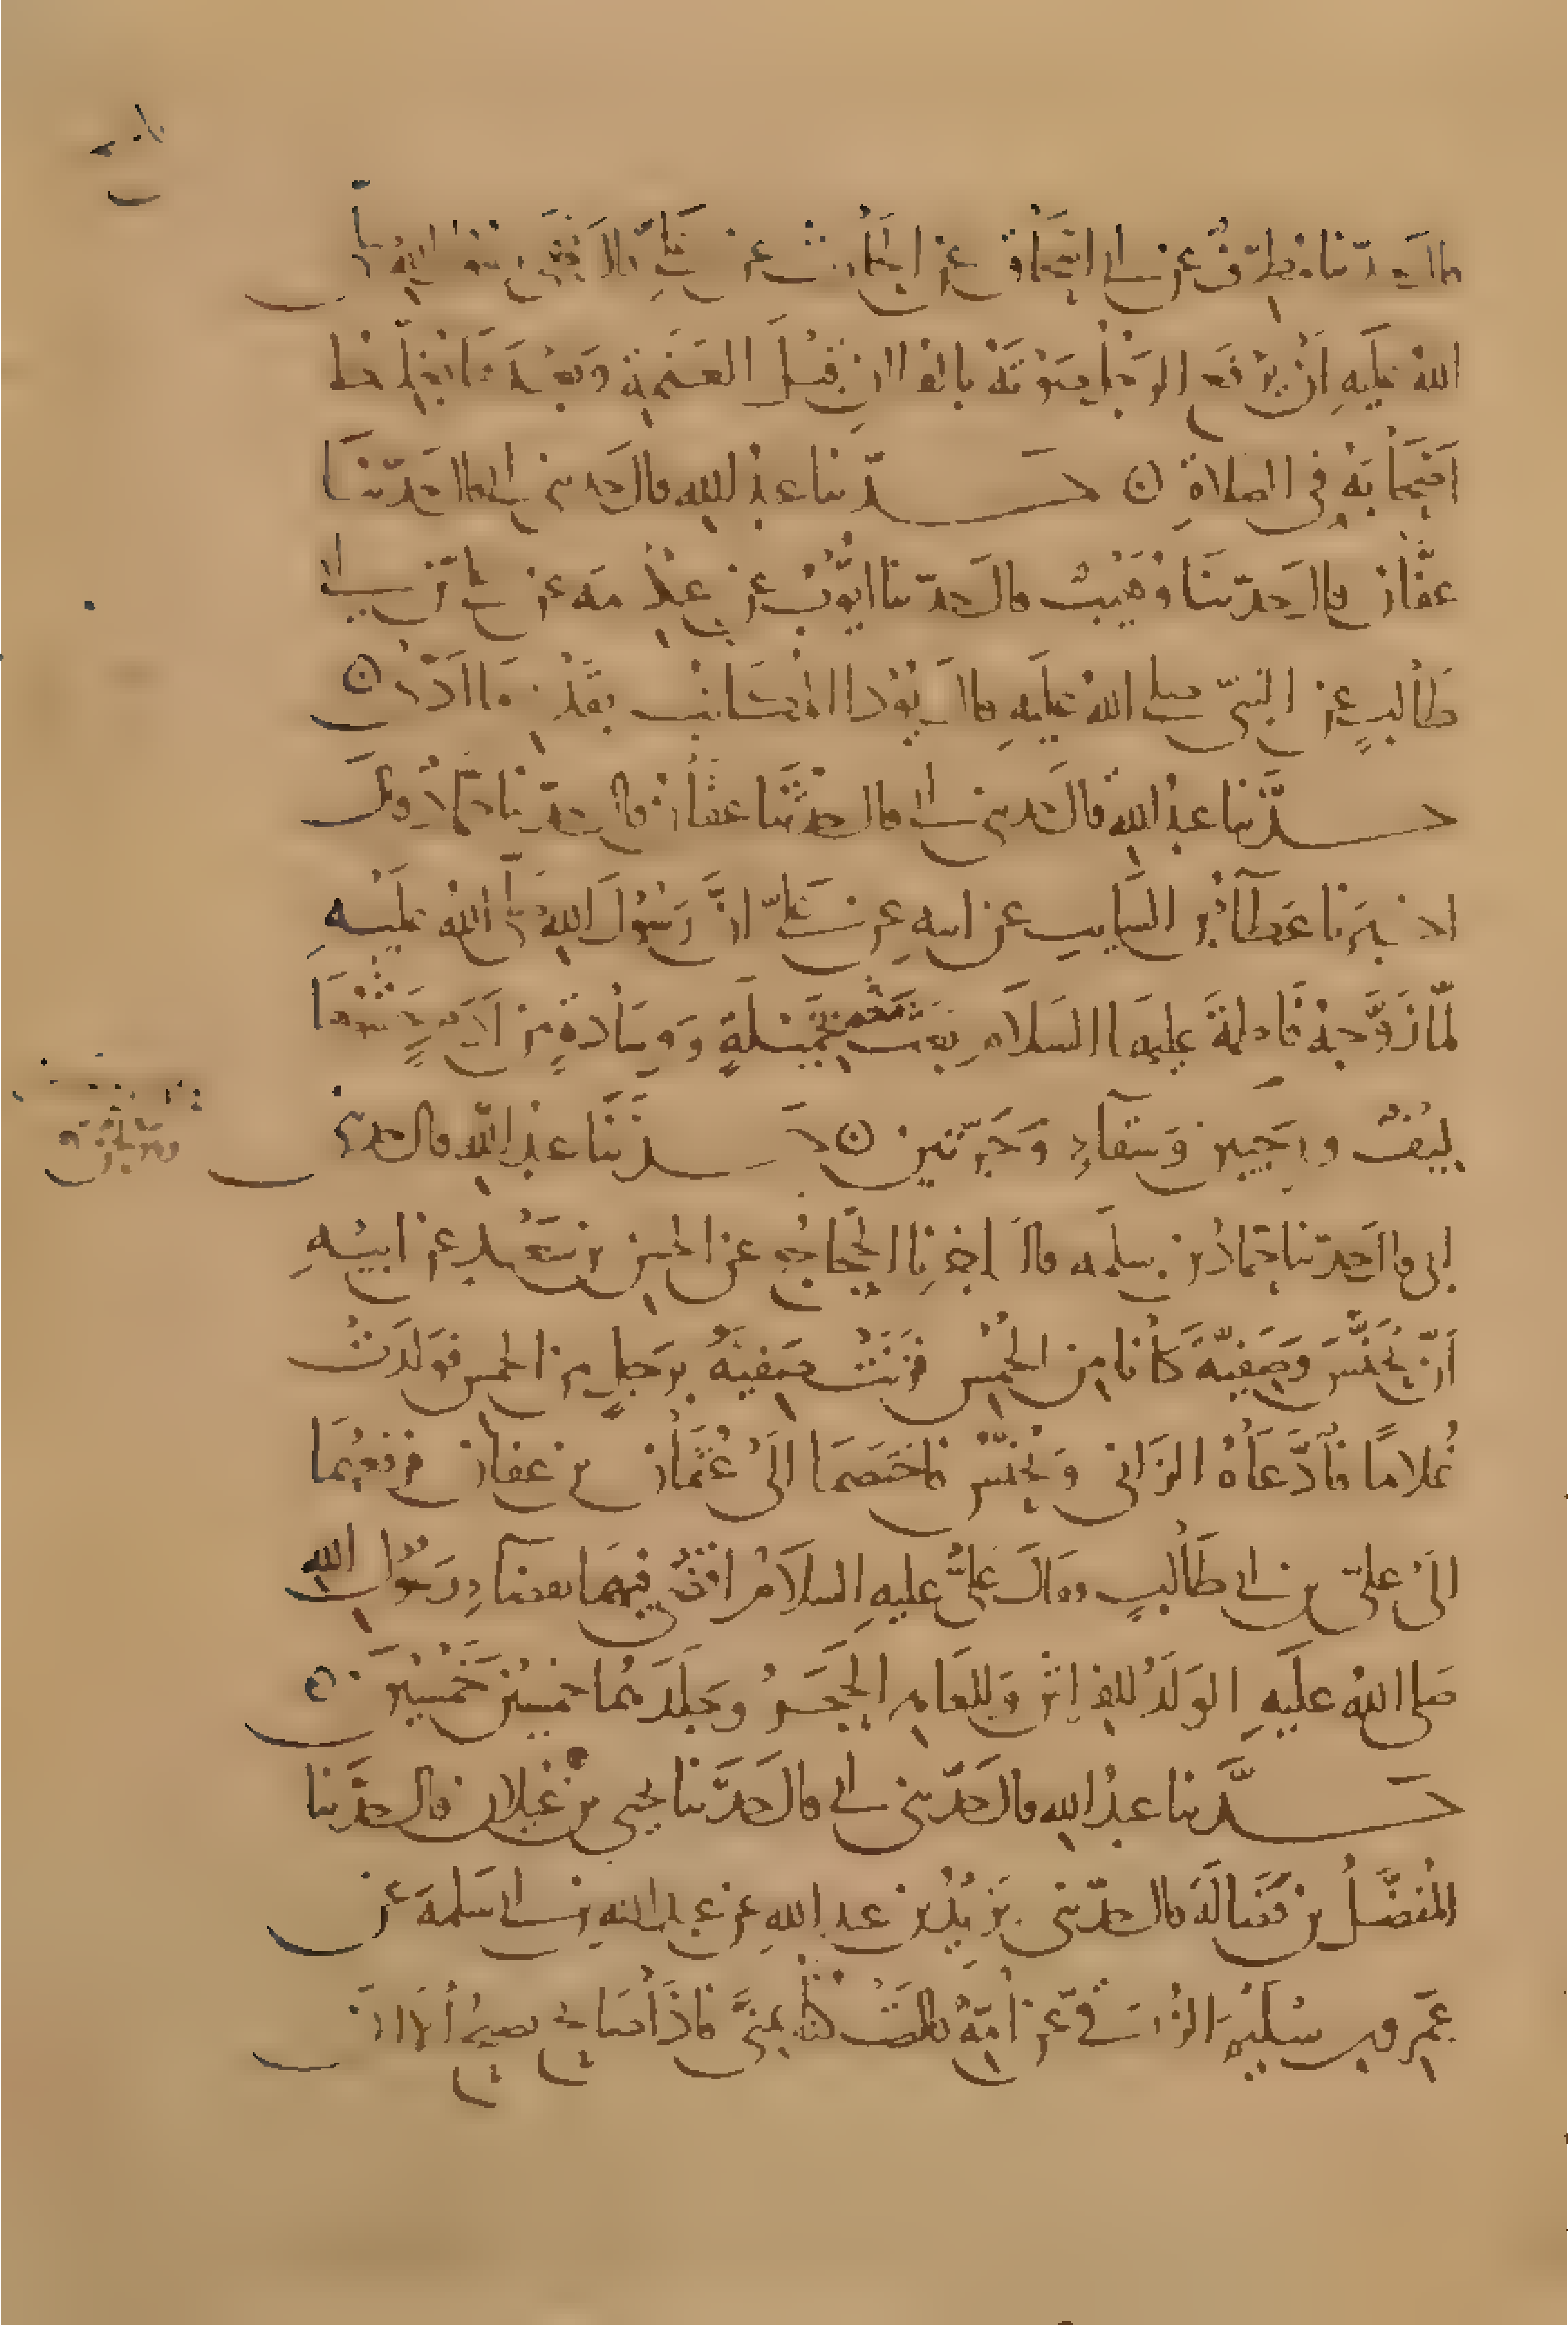 قال حدثنا مطرف عن أبي إسحاق عن الحارث عن علي قال نهى رسول الله صلى
الله عليه أن يرفع الرجل صوته بالقران قبل العتمة وبعدها يغلط
أصحابه في الصلاة ○ حدثنا عبد الله قال حدثني أبي قال حدثنا
عفان قال حدثنا وهيب قال حدثنا أيوب عن عكرمة عن علي بن أبي
طالب عن النبي صلى الله عليه قال يودا المكاتب بقدر ما أدى ○
حدثنا عبد الله قال حدثني أبي قال حدثنا عفان قال حدثنا حماد قال
اخبرنا عطاء بن السايب عن ابيه عن علي أن رسول الله صلى الله عليه
لما زوجه فاطمة عليها السلام بعث معه بخميلة ووسادة من أدم حشوها
ليف ورحيين وسقاء وجرتين ○ حدثنا عبد الله قال حدثني
ابي قال حدثنا حماد بن سلمه قال اخبرنا الحجاج عن الحسن بن سعد عن ابيه
أن يحنس وصفية كانا من الخمس فزنت صفية برجل من الخمس فولدت
غلاما فادعاه الزاني ويحنس فاختصما الى عثمان بن عفان فرفعهما
الى علي بن أبي طالب فقال علي عليه السلام اقضي فيهما بقضاء رسول الله
صلى الله عليه الولد للفراش وللعاهر الحجر وجلدهما خمسين خمسين ○
حدثنا عبد الله قال حدثني أبي قال حدثنا يحيى بن غيلان قال حدثنا
المفضل بن فضالة قال حدثني يزيد بن عبد الله عن عبد الله بن أبي سلمة عن
عمرو بن سليم الزرقي عن أمه قالت كنا بمنى فاذا صايح يصيح ألا ان